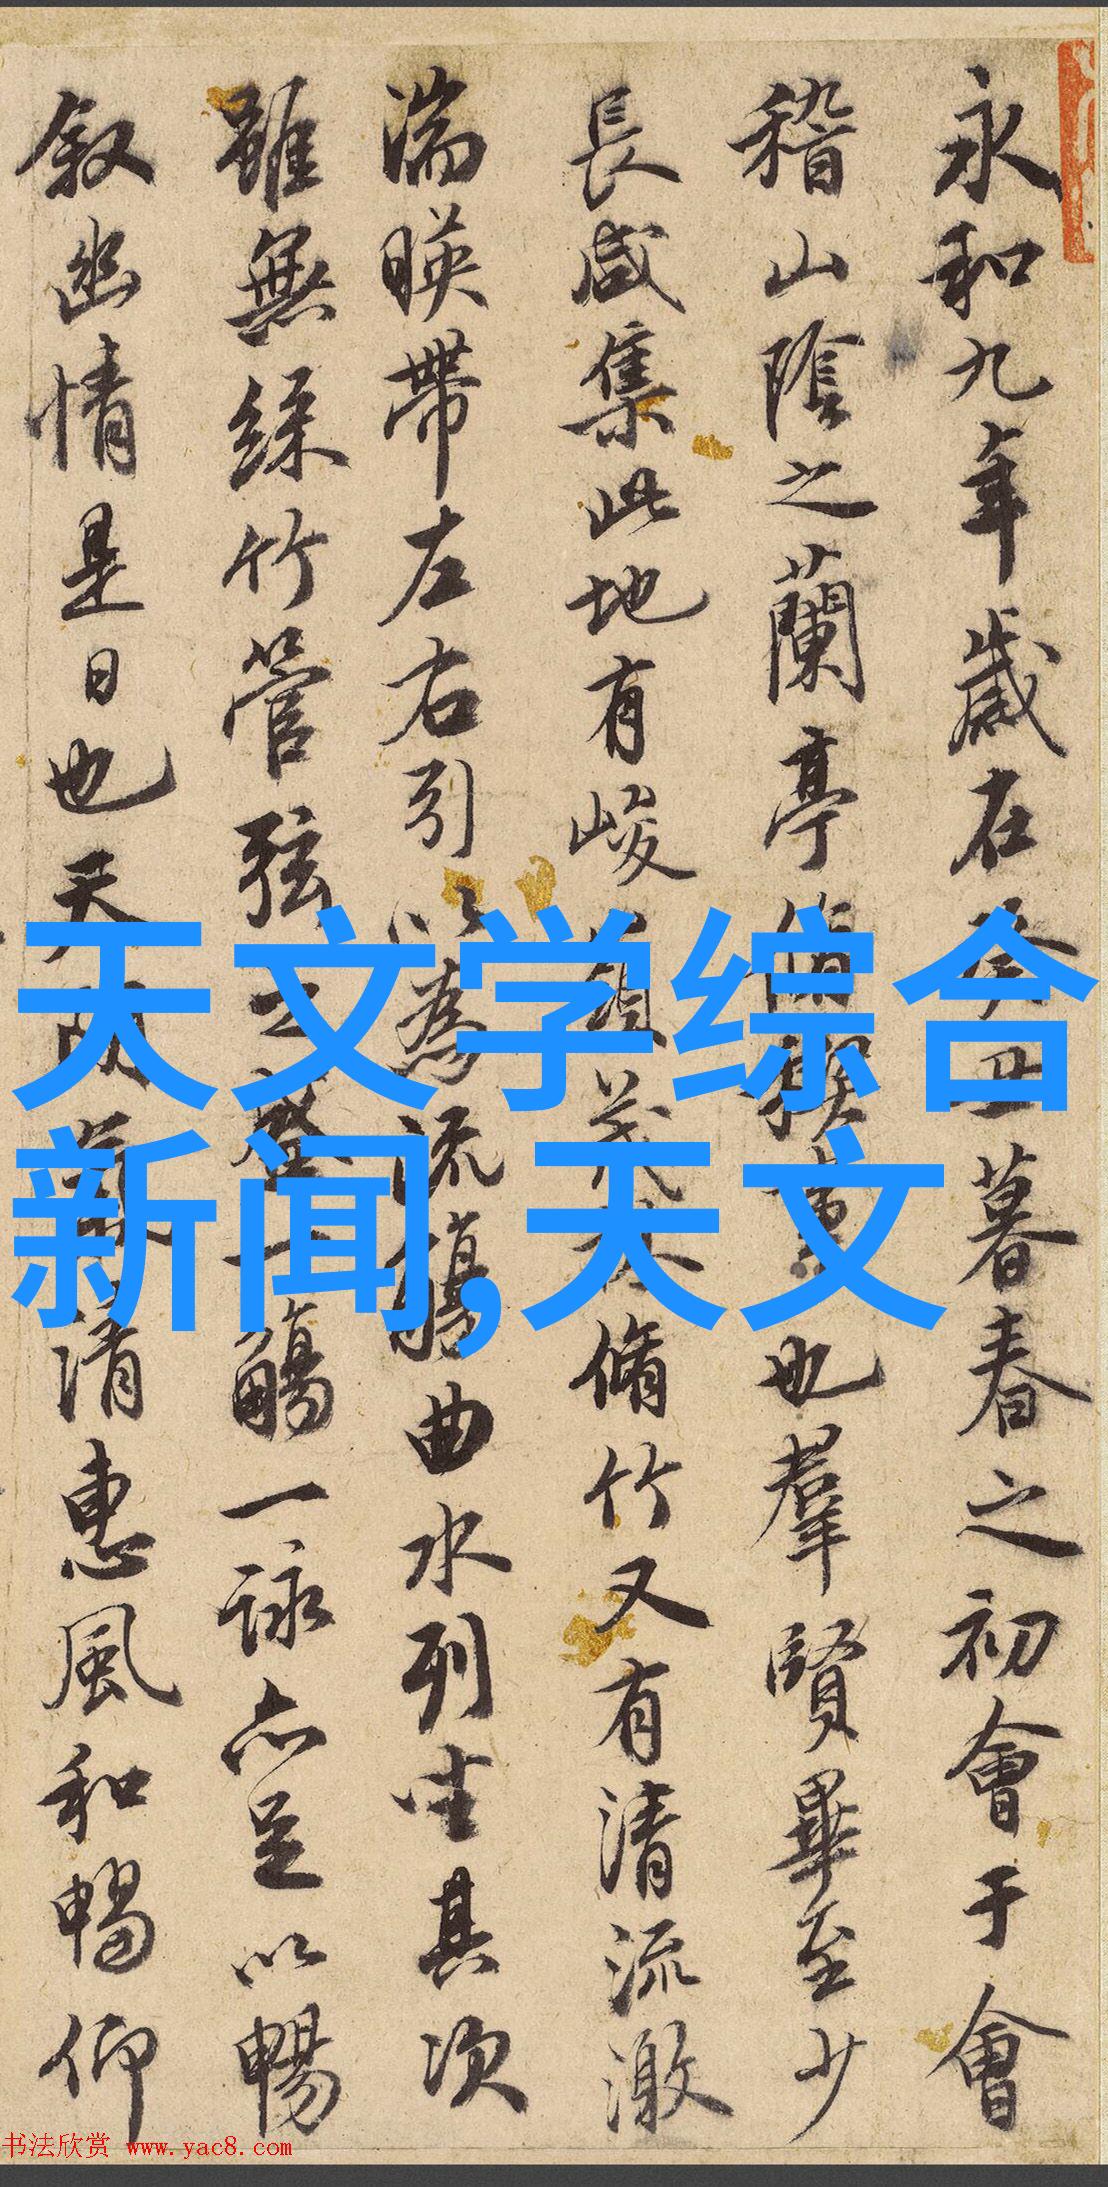 永和九年歲在癸丑暮春之初會于會
稽山陰之蘭亭脩禊事也羣賢畢至少
長咸集此地有峻領茂林脩竹又有清流激
湍暎帶左右引以為流觴曲水列坐其次
雖無絲竹管弦之盛一觴一詠亦足以暢
叙幽情是日也天朗氣清惠風和暢仰
天文学综合
新闻,天文
书法欣赏 www.yac8.com